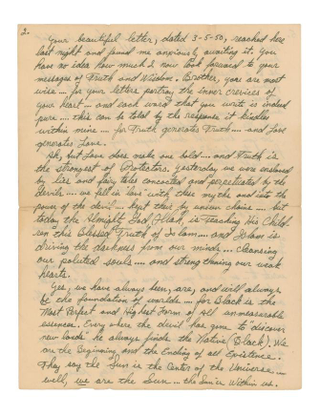 2.
Your beautiful letter, dated 3-5-50, reached here
last night and found me anxiously awaiting it. You
have no idea how much I now look forward to your
messages of Truth and Wisdom. Brother, you are most
wise.... for your letters portray the inner crevices of
your heart.... and each word that you write is indeed
pure.... this can be told by the response it kindles
within mine.... for Truth generates Truth.... and Love
generates Love.
Ah, but Love does make one bold.... and Truth is
the Strongest of Protectors. Yesterday we were enslaved
by lies and fairy tales concocted and perpetuated by the
devils.... we fell in love with their myths and into the
power of the devil.... kept there by unseen chains.... but
today the Almighty God, Allah, is teaching His Child-
ren this Blessed Truth of Islam.... and Islam is
driving the darkness from our minds.... Cleansing
our poluted souls.... and strengthening our weak
hearts.
Yes, we have always been, are, and will always
be the foundation of worlds.... for Black is the
Most Perfect and Highest Form of All immeasurable
essences. Every where the devil has gone to discover
"new lands" he always finds the Native (Black). We
are the Beginning and the Ending of all Existence.
They say the Sun is the Center of the Universe....
well, we are the Sun.... the Sun is Within us.